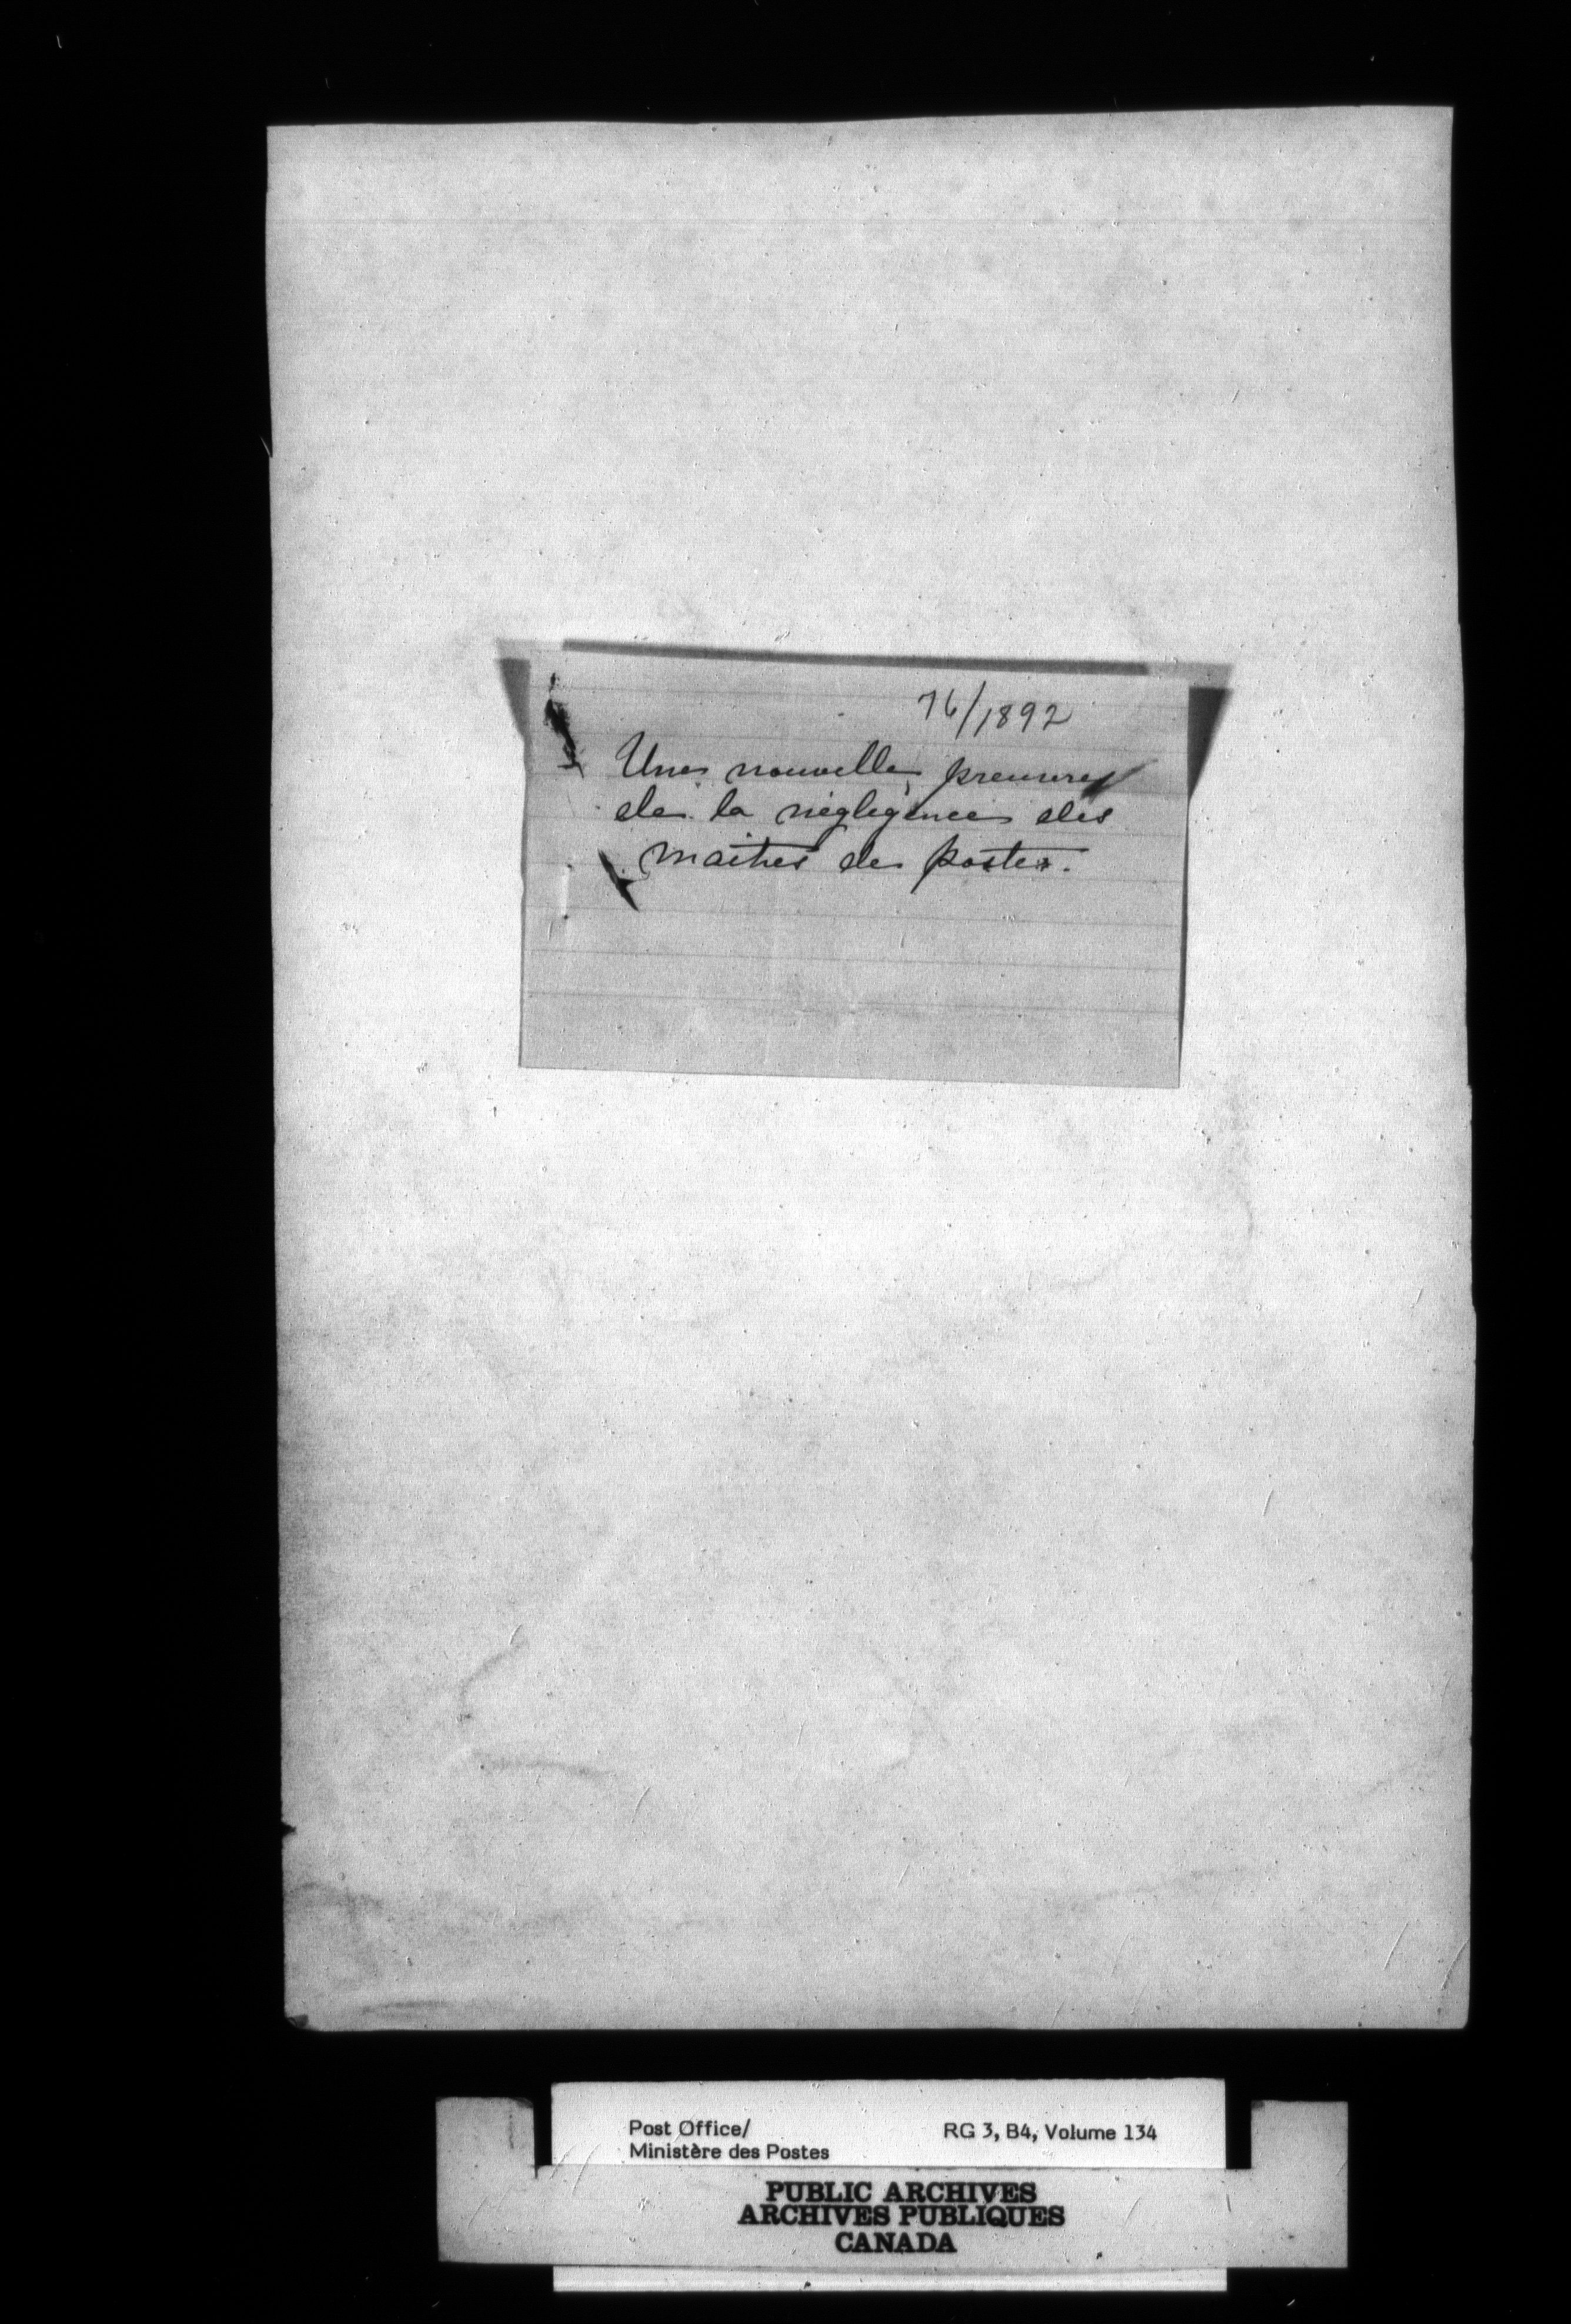 76/1892
Une nouvelle preuve
de la négligence des
maitres de poste.
Post Office/
Ministère des Postes
RG 3, B4, Volume 134
PUBLIC ARCHIVES
ARCHIVES PUBLIQUES
CANADA